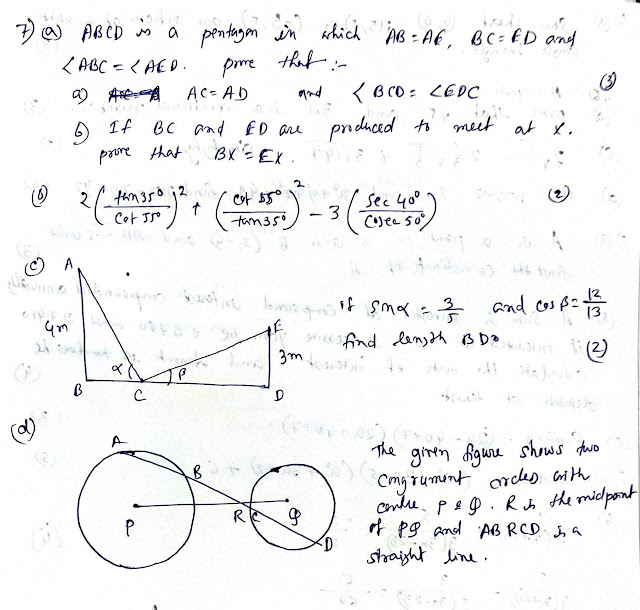 7) (a) ABCD is a pentagon in which AB = AE, BC = ED and
∠ABC = ∠AED. prove that :-
a) AC = AD and ∠BCD = ∠EDC (3)
b) If BC and ED are produced to meet at X.
prove that BX = EX.
(b) 2(tan35°/cot55°)² + (cot55°/tan35°)² - 3(sec40°/cosec50°) (2)
(c) A
4m
α
β
B
C
D
E
3m
if sinα = 3/5 and cosβ = 12/13
find length BD. (2)
(d)
A
B
P
R
C
Q
D
The given figure shows two
congrument circles with
centre P & Q. R is the midpoint
of PQ and ABRCD is a
straight line.